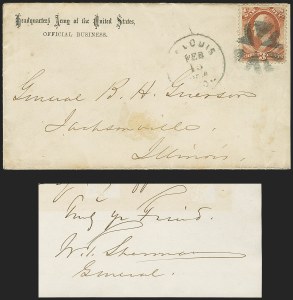 Headquarters Army of the United States,
OFFICIAL BUSINESS.
LOUIS
FEB
General B. H. Grierson
Jacksonville,
Illinois.
Truly yr Friend.
W. T. Sherman
General.